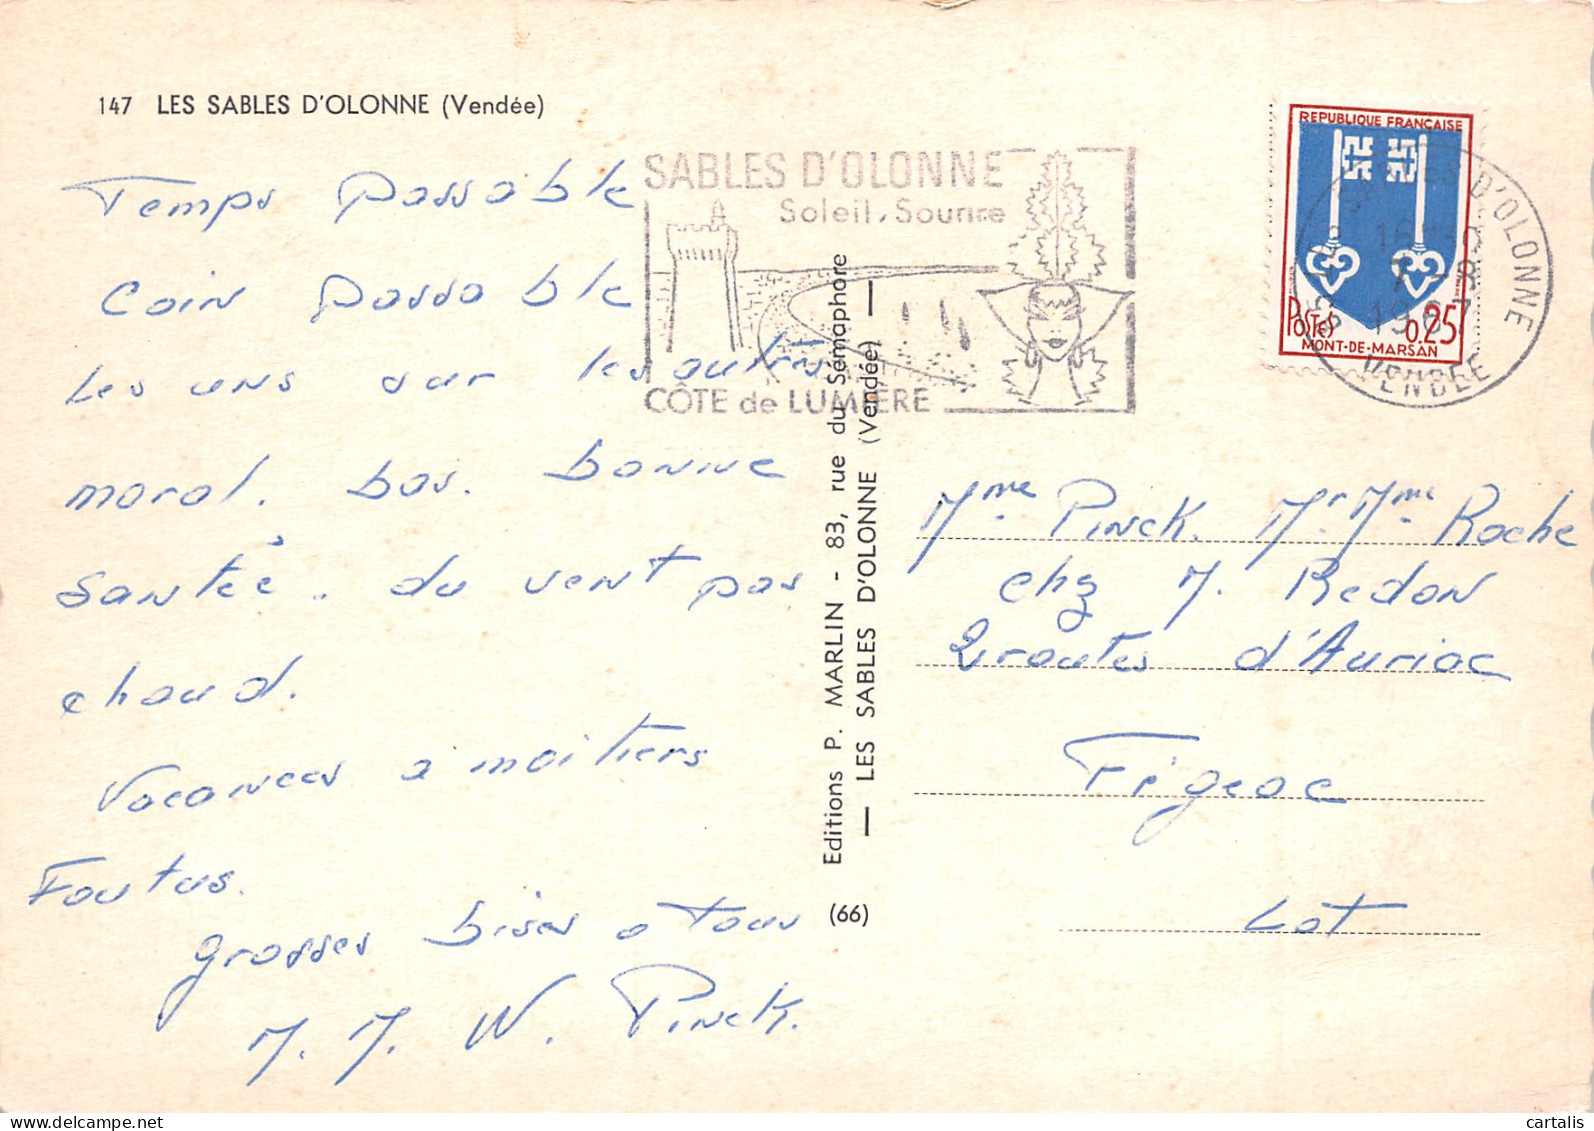 147 LES SABLES D'OLONNE (Vendée)
Temps passable
Coin passable
les uns sur les autres
moral. bas. bonne
santée. du vent pas
chaud.
Vacances a moitiers
Foutus.
grosses bises a tous
M. M. W. Pinck.
SABLES D'OLONNE
Soleil, Sourire
CÔTE de LUMIÈRE
Editions P. MARLIN - 83, rue du Sémaphore
— LES SABLES D'OLONNE (Vendée) —
(66)
REPUBLIQUE FRANÇAISE
POSTES
0,25
MONT-DE-MARSAN
D'OLONNE
7 -8
1967
VENDÉE
Mme Pinck. Mr. Mme. Roche
chz M. Redon
2 routes d'Auriac
Figeac
Lot
delcampe.net
cartalis